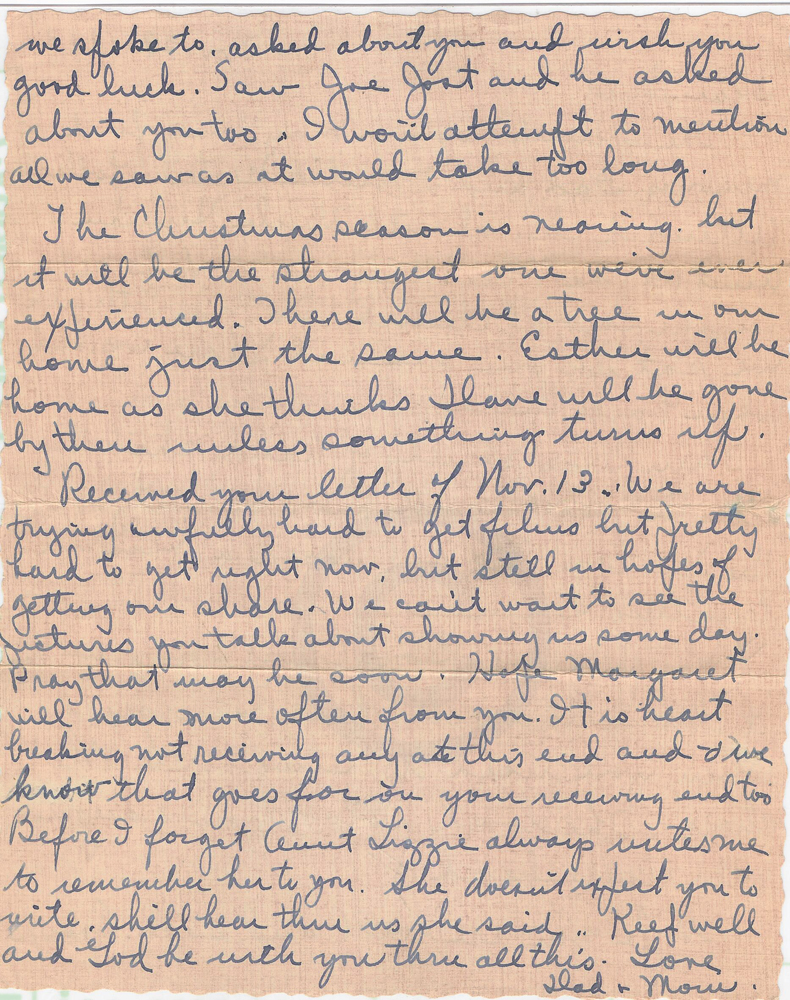 we spoke to. asked about you and wish you
good luck. Saw Joe Jost and he asked
about you too. I won't attempt to mention
all we saw as it would take too long.
The Christmas season is nearing. but
it will be the strangest one we've ever
experienced. There will be a tree in our
home just the same. Esther will be
home as she thinks Dave will be gone
by then unless something turns up.
Received your letter of Nov. 13.. We are
trying awfully hard to get films but pretty
hard to get right now, but still in hopes of
getting our share. We can't wait to see the
pictures you talk about showing us some day.
Pray that may be soon. Hope Margaret
will hear more often from you. It is heart
breaking not receiving any at this end and we
know that goes for on your receiving end too
Before I forget Aunt Lizzie always writes me
to remember her to you. She doesn't expect you to
write. she'll hear thru us she said.. Keep well
and God be with you thru all this. Love
Dad + Mom.